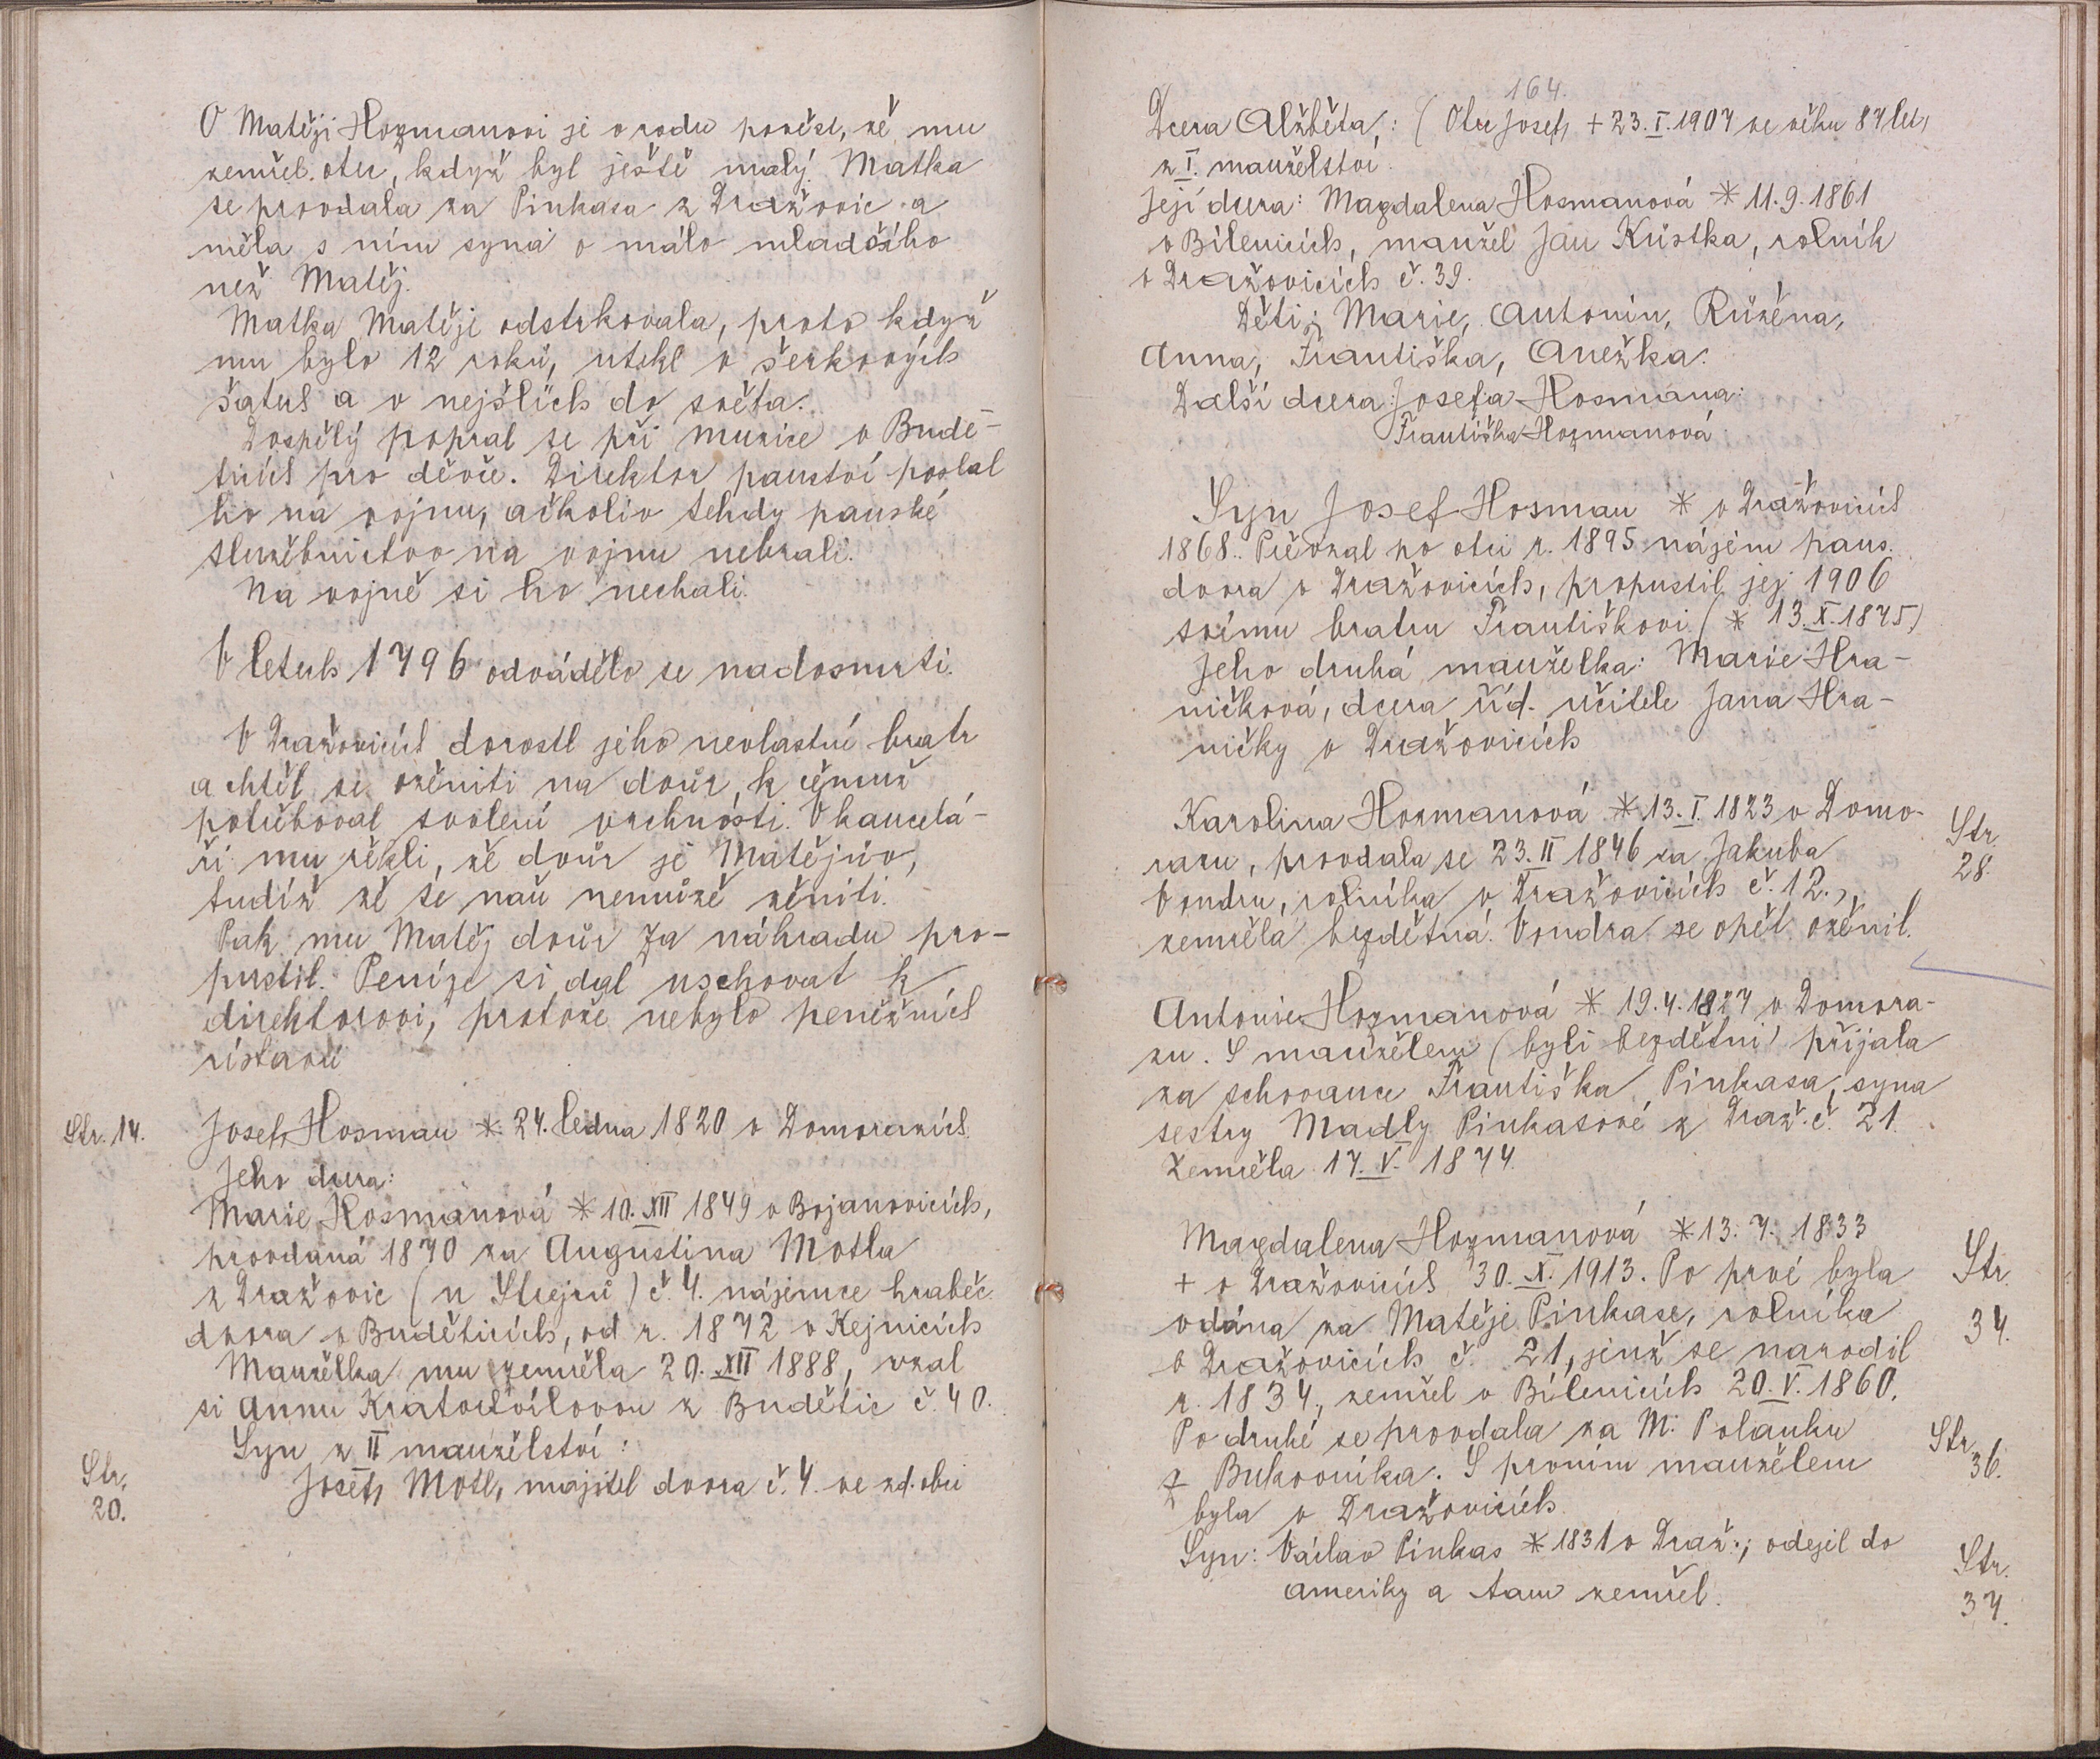 O Matěji Hozmanovi je v rodu pověst, že mu
zemřel otec, když byl ještě malý. Matka
se provdala za Pinkasa z Dražovic a
měla s ním syna o málo mladšího
než Matěj.
Matka Matěje odstrkovala, proto když
mu bylo 12 roků, utekl v šerkových
šatech a v nejšlích do světa.
Dospělý popral se při muzice v Budě-
ticích pro děvče. Direktor panství poslal
ho na vojnu, ačkoliv tehdy panské
služebnictvo na vojnu nebrali.
Na vojně si ho nechali.
V letech 1796 odvádělo se nadosmrti.
V Dražovicích dorostl jeho nevlastní bratr
a chtěl se oženiti na dvůr, k čemuž
potřeboval svolení vrchnosti. V kancelá-
ři mu řekli, že dvůr je Matějův,
tudíž že se naň nemůže ženiti.
Pak mu Matěj dvůr za náhradu pro-
pustil. Peníze si dal uschovat k
direktorovi, protože nebylo peněžních
ústavů
Str. 14. Josef Hosman * 24. ledna 1820 v Domorazích
Jeho dcera:
Marie Hosmanová * 10. XII 1849 v Bojanovicích,
provdaná 1870 za Augustina Motla
z Dražovic (u Strejců) č. 4. nájemce hraběc.
dvora v Buděticích, od r. 1872 v Kejnicích
Manželka mu zemřela 29. XII 1888, vzal
si Annu Kratochvílovou z Budětic č. 40.
Syn z II manželství:
Str. 20. Josef Motl, majitel dvora č. 4. ve zd. obci
164.
Dcera Alžběta,: (Otec Josef + 23. I. 1907 ve věku 87 let)
z I. manželství.
Její dcera: Magdalena Hosmanová * 11. 9. 1861
v Bílenicích, manžel Jan Krištka, rolník
v Dražovicích č. 39.
Děti: Marie, Antonín, Růžena,
Anna, Františka, Anežka.
Další dcera Josefa Hosmana:
Františka Hozmanová
Syn Josef Hosman * v Dražovicích
1868. Převzal po otci r. 1895 nájem pans.
dvora v Dražovicích, propustil jej 1906
svému bratru Františkovi (* 13. X. 1875)
Jeho druhá manželka: Marie Hra-
ničková, dcera říd. učitele Jana Hra-
ničky v Dražovicích
Karolina Hozmanová * 13. I. 1823 v Domo-
Str. 28.
razu, provdala se 23. II 1846 za Jakuba
Vondru, rolníka v Dražovicích č. 12.,
zemřela bezdětná. Vondra se opět oženil.
Antonie Hozmanová * 19. 4. 1827 v Domora-
zu. S manželem (byli bezdětni) přijala
za schovance Františka Pinkasa, syna
sestry Madly Pinkasové z Draž. č. 21.
Zemřela 17. V. 1874.
Magdalena Hozmanová * 13. 7. 1833
+ v Dražovicích 30. X. 1913. Po prvé byla
Str. 34.
vdána za Matěje Pinkase, rolníka
v Dražovicích č. 21, jenž se narodil
r. 1834, zemřel v Bílenicích 20. V. 1860.
Po druhé se provdala za M. Polanku
Str. 36.
z Bukovníka. S prvním manželem
byla v Dražovicích.
Syn: Václav Pinkas * 1831 v Draž.; odejel do
Str. 37.
Ameriky a tam zemřel.